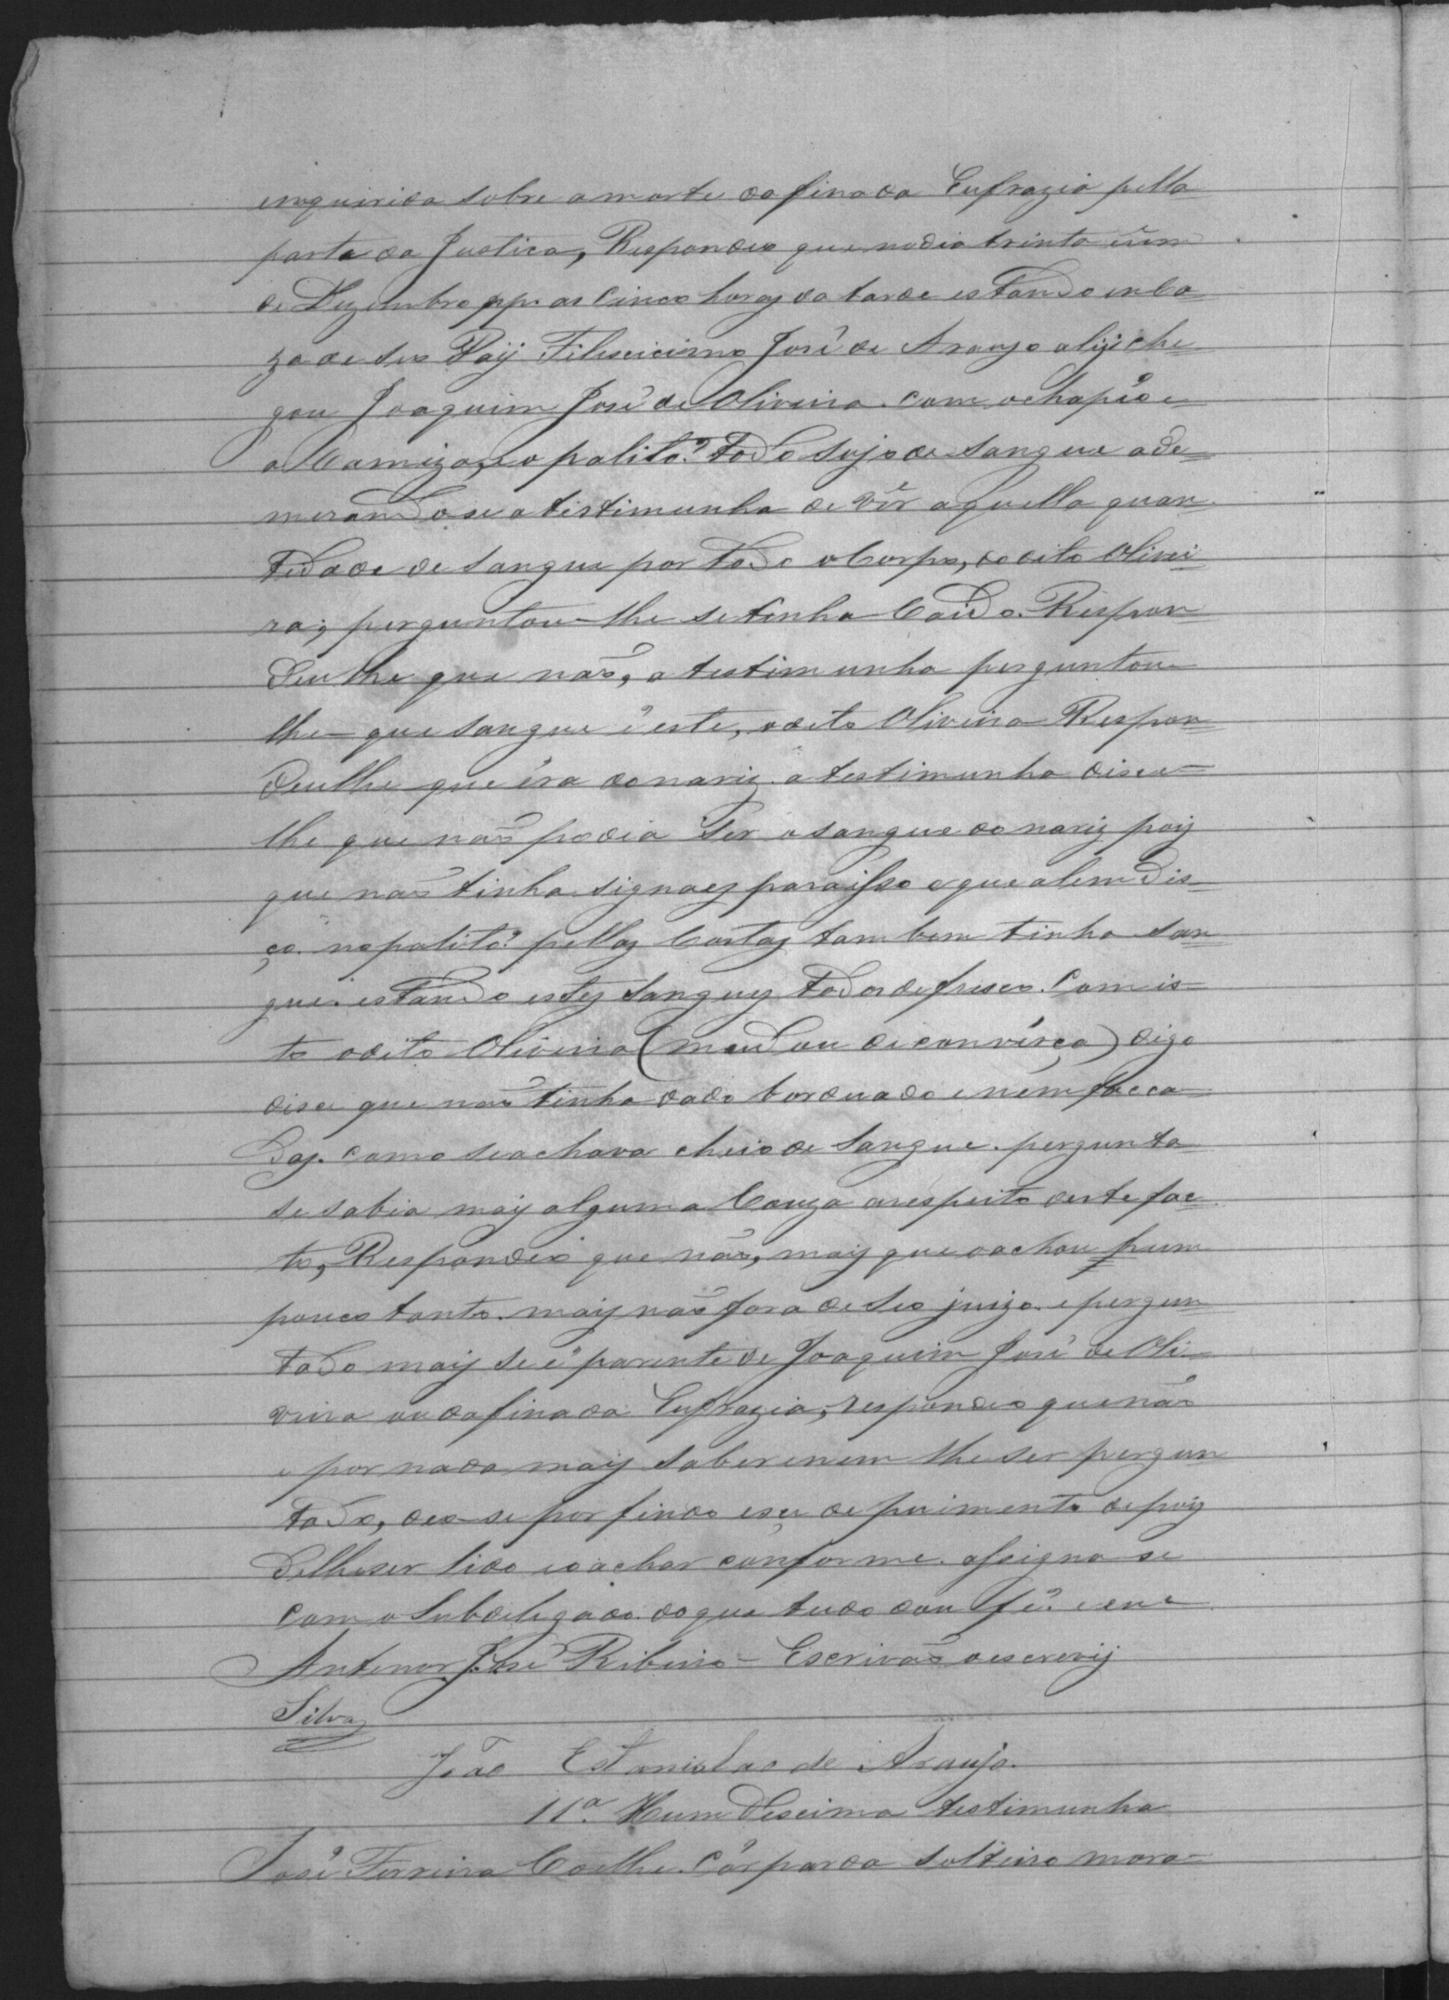 inquirida sobre a morte da finada Eufrazia pella
parte da Justica, Respondeo que no dia trinta úm
de Dezembro pp. as Cinco horas da tarde estando en Ca
za de seo Paij José de Araujo alij che
gou Joaquim José de Oliveira com o chapéo e
a Camiza, e o palitó todo sujo de sangue ade=
merando se a testimunha de vêr aquella quan
tidade de sangue por todo o Corpo, do dito Olivei
ra; perguntou-lhe se tinha Caido. Respon
deu lhe que não, a testimunha perguntou
lhe que sangue é este, o dito Oliveira Respon
deu lhe que éra do nariz a testimunha disce
lhe que não podia Ser o sangue do nariz poij
que não tinha signaes para isso e que alem dis
ço no palitó pellas Costas tambem tinha san
gue. estando estes sangues todos de fresco. Com is
to o dito Oliveira (mudou de convérça) digo
disce que não tinha dado borduado e nem facca
das. como se achava cheio de sangue. pergunta
se sabia maij alguma Couza a respeito deste fac
to, Respondeo que não, maij que o achou hum
pouco tonto. maij não fora de seo juizo. e pergun
tado maij se é parente de Joaquim José de Oli
veira ou da finada Eufrazia, respondeo que não
e por nada maij saber e nem lhe ser pergun
tado, deo-se por findo esce depuimento depois
de lhe ser lido e o achar conforme. assigna se
com o Subdelegado do que tudo dou fé. e eu
Antenor José Ribeiro - Escrivão o escrevij
Silva
João Estanislao de Araujo.
11ª. Hum Decima testimunha
José Ferreira Coelho. Côr parda solteiro mora-